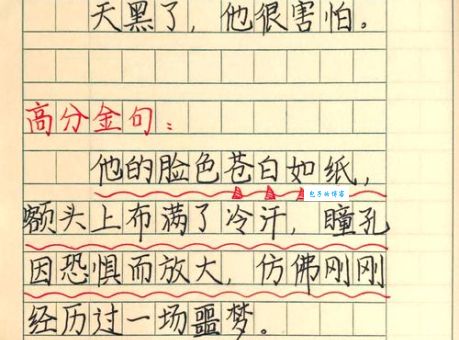 天黑了，他很害怕。
高分金句：
他的脸色苍白如纸，
包子的博客
额头上布满了冷汗，瞳孔
因恐惧而放大，仿佛刚刚
经历过一场噩梦。